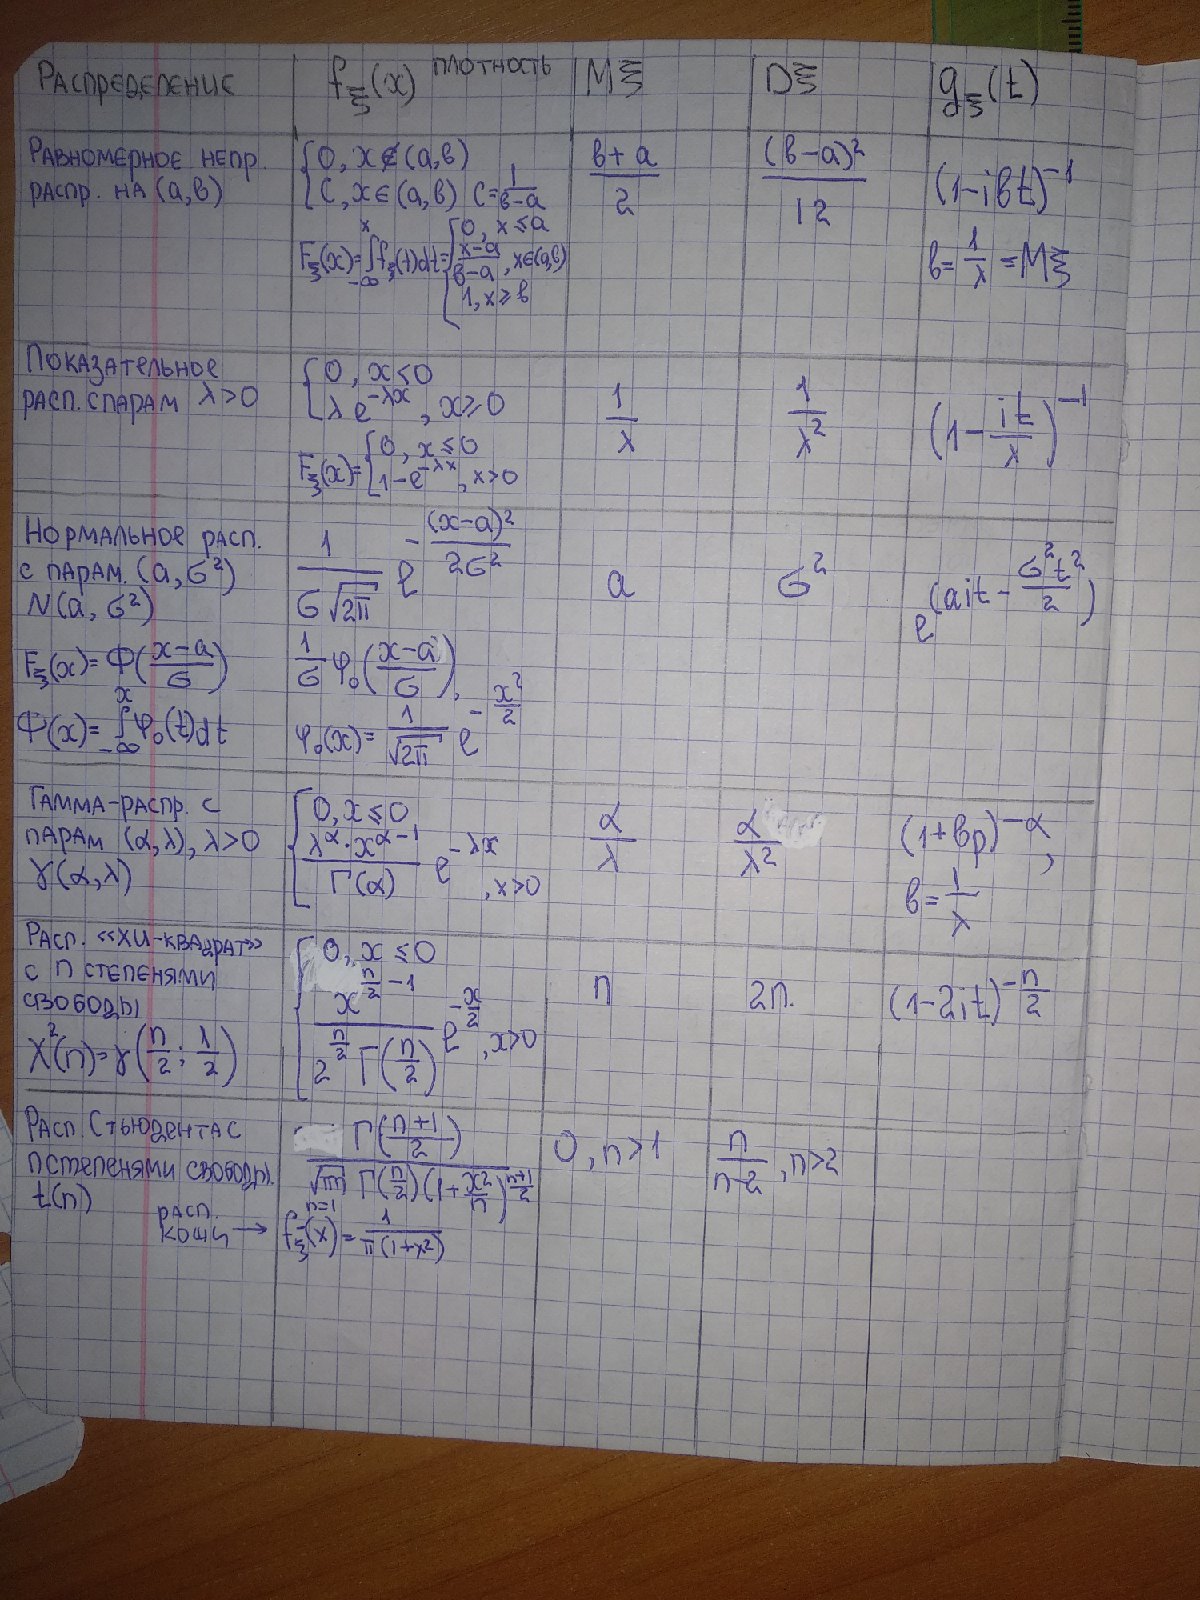 Распределение fξ(x) плотность Mξ Dξ gξ(t)
Равномерное непр. распр. на (a,b)
{0, x∉(a,b)
{C, x∈(a,b) C=1/(b-a)
Fξ(x)=∫_{-∞}^{x} fξ(t)dt={0, x≤a
(x-a)/(b-a), x∈(a,b)
1, x≥b
(b+a)/2
(b-a)²/12
(1-ibt)⁻¹
b=1/λ=Mξ
Показательное
расп. с парам λ>0
{0, x≤0
{λe^{-λx}, x≥0
Fξ(x)={0, x≤0
{1-e^{-λx}, x>0
1/λ
1/λ²
(1-it/λ)⁻¹
Нормальное расп.
с парам. (a,σ²)
N(a,σ²)
Fξ(x)=Φ((x-a)/σ)
Φ(x)=∫_{-∞}^{x} φ₀(t)dt
1/(σ√2π) e^{-(x-a)²/2σ²}
1/σ φ₀((x-a)/σ),
φ₀(x)=1/√2π e^{-x²/2}
a
σ²
e^{(ait-σ²t²/2)}
Гамма-распр. с
парам (α,λ), λ>0
γ(α,λ)
{0, x≤0
{λ^α·x^{α-1}/Γ(α) e^{-λx}, x>0
α/λ
α/λ²
(1+bp)^{-α},
b=1/λ
Расп. «хи-квадрат»
с n степенями
свободы
χ²(n)=γ(n/2; 1/2)
{0, x≤0
{x^{n/2-1}/(2^{n/2} Γ(n/2)) e^{-x/2}, x>0
n
2n.
(1-2it)^{-n/2}
Расп. Стьюдента с
n степенями свободы.
t(n)
Γ((n+1)/2)/(√πn Γ(n/2)(1+x²/n)^{(n+1)/2})
0, n>1
n/(n-2), n>2
расп.
Коши → n=1
fξ(x)=1/(π(1+x²))